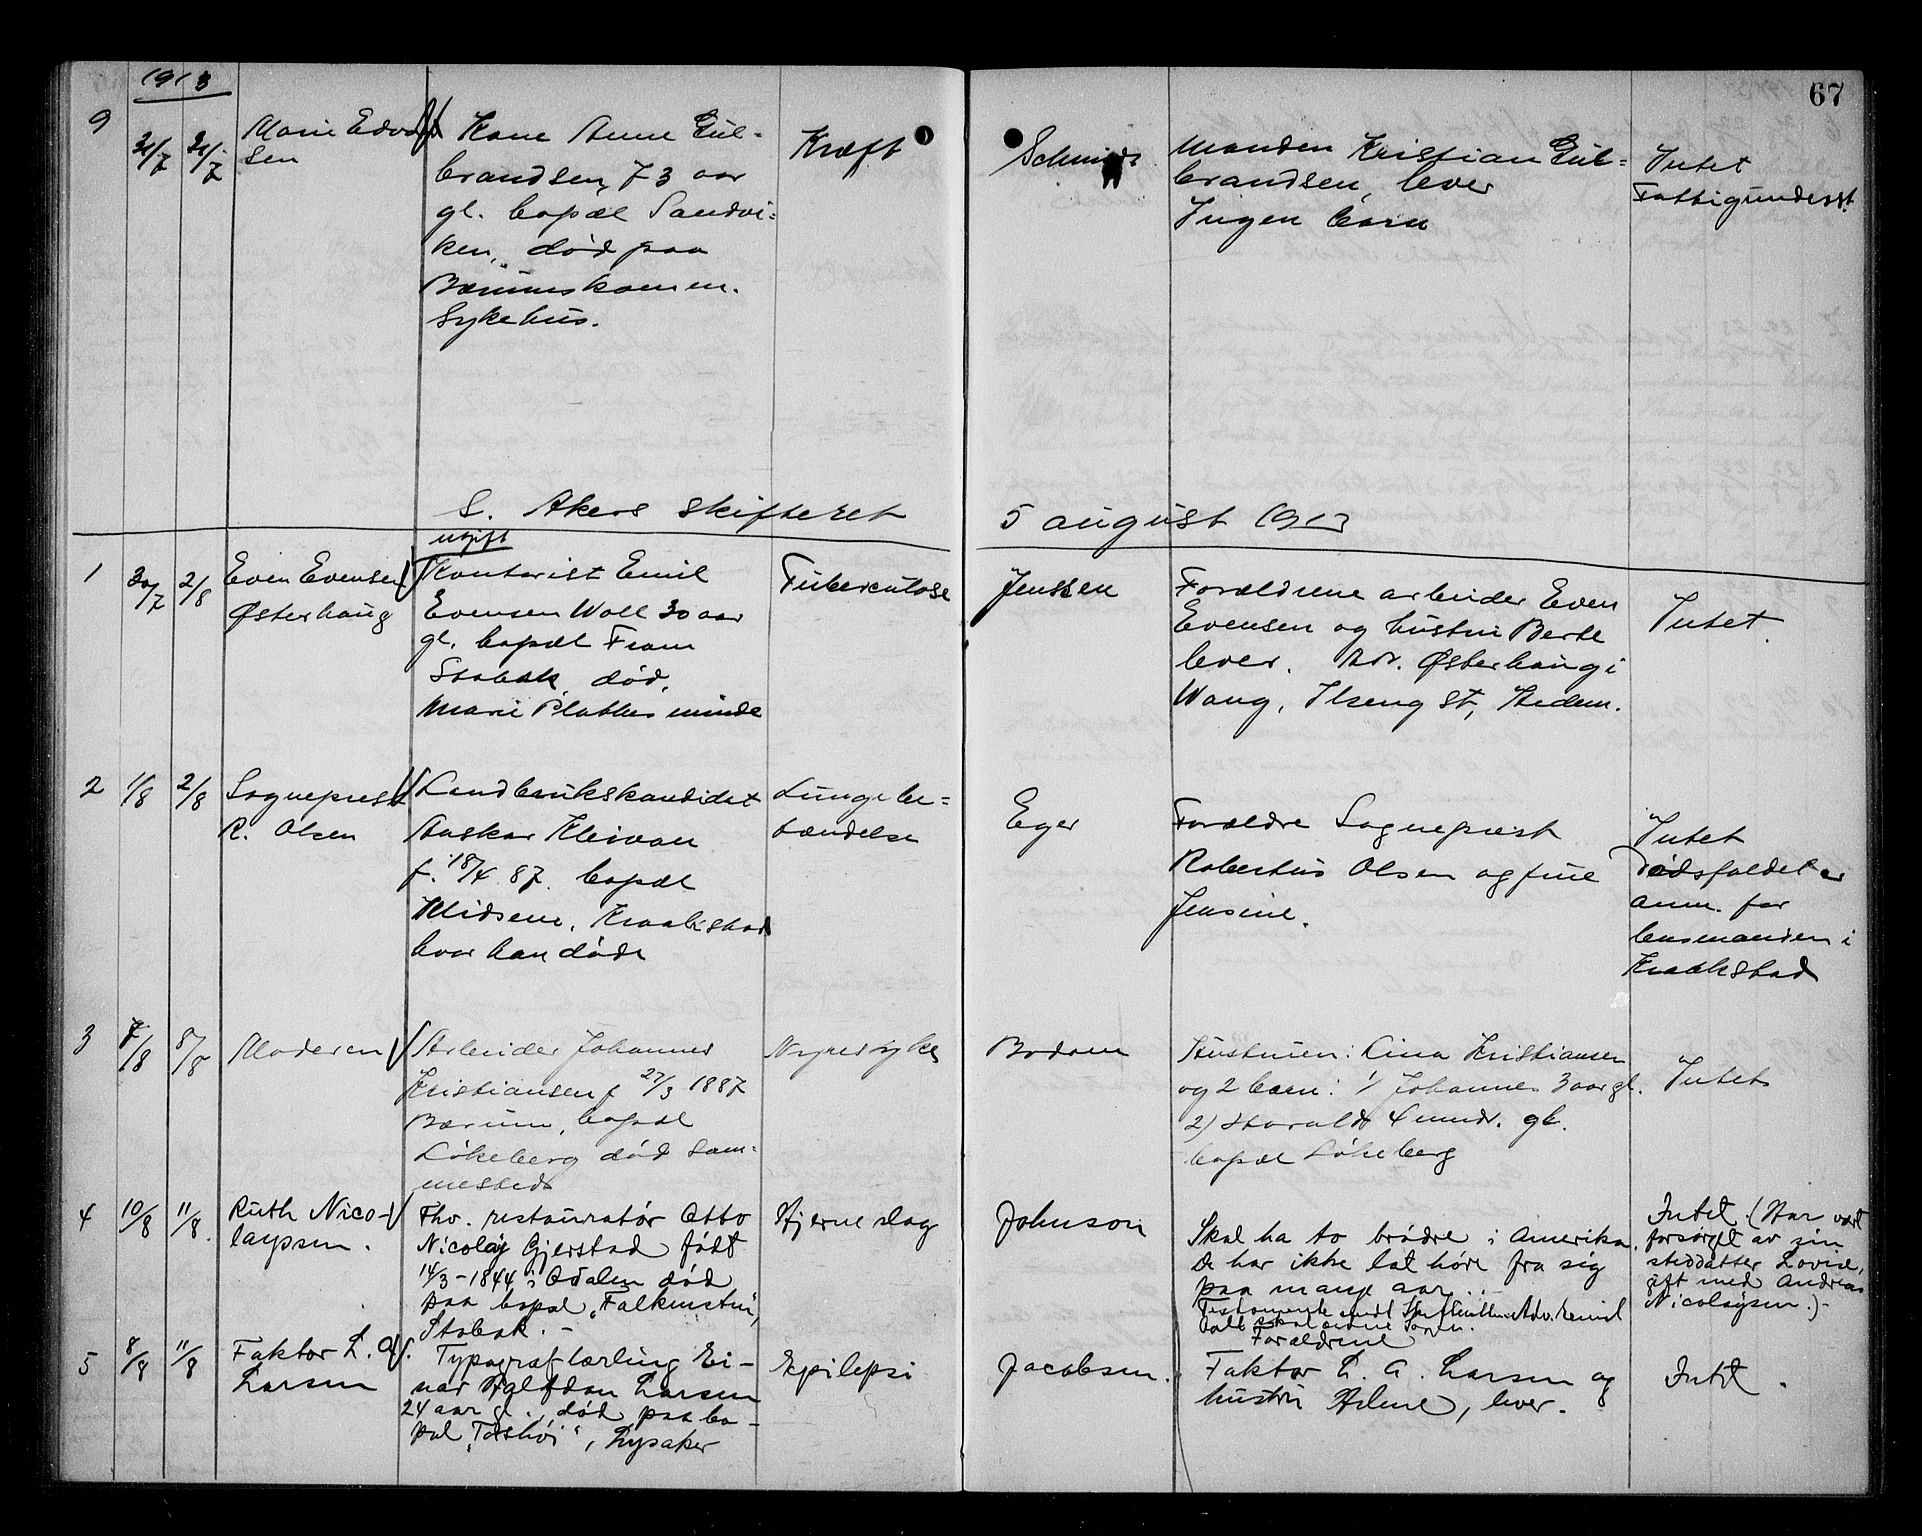 1913
67
9
31/7
31/7
Marie Edvard
sen
Kone Anne Gul-
brandsen, 73 aar
gl. bopæl Sandvi-
ken, død paa
Bærums komm.
Sykehus.
Kræft
Schmidt
Manden Kristian Gul-
brandsen, lever
Ingen barn
Intet
Fattigunderst.
S. Akers skifteret
5 august 1913
1
30/7
2/8
Even Evensen
Østerhaug
ugift
Kontorist Emil
Evensen Woll 30 aar
gl. bopæl Fram
Stabæk, død,
Marie Plathes minde
Tuberculose
Jenssen
Forældrene arbeider Even
Evensen og hustru Berte
lever. Adr. Østerhaug i
Wang, Ilseng St, Hedem.
Intet.
2
1/8
2/8
Sogneprest
R. Olsen
Landbrukskandidat
Anskar Kleivan
f. 18/4 87. bopæl
Klidsene, Kraakstad
hvor han døde
Lungebe-
tændelse
Eger
Forældre Sogneprest
Robertus Olsen og frue
Jensine.
Intet
Dødsfaldet er
anm. for
lensmanden i
Kraakstad
3
7/8
8/8
Moderen
Arbeider Johannes
Kristiansen f 27/3 1887
Bærum, bopæl
Løkeberg død sam-
mesteds
Nyresyke
Bodom
Hustruen: Lina Kristiansen
og 2 barn: 1/ Johannes 3 aar gl.
2) Harald 4 mndr. gl.
bopæl Løkeberg
Intet
4
10/8
11/8.
Ruth Nico-
laysen.
Fhv. restauratør Otto
Nicolay Gjerstad født
14/3-1844 i Odalen død
paa bopæl "Falkensten",
Stabæk. -
Hjerneslag
Johnson
Skal ha to brødre i Amerika.
De har ikke lat høre fra sig
paa mange aar.
Testamente sendt Adv. Emil
skal
Intet. (Har vært
forsørget av sin
steddatter Lovise,
gift med Andreas
Nicolaysen.)-
5
8/8
11/8
Faktor L. A.
Larsen
Typograflærling Ei-
nar Halfdan Larsen
24 aar gl., død paa bo-
pæl "Toshøi", Lysaker
Epilepsi
Jacobsen.
Forældrene
Faktor L. A. Larsen og
hustru Helene, lever.
Intet.